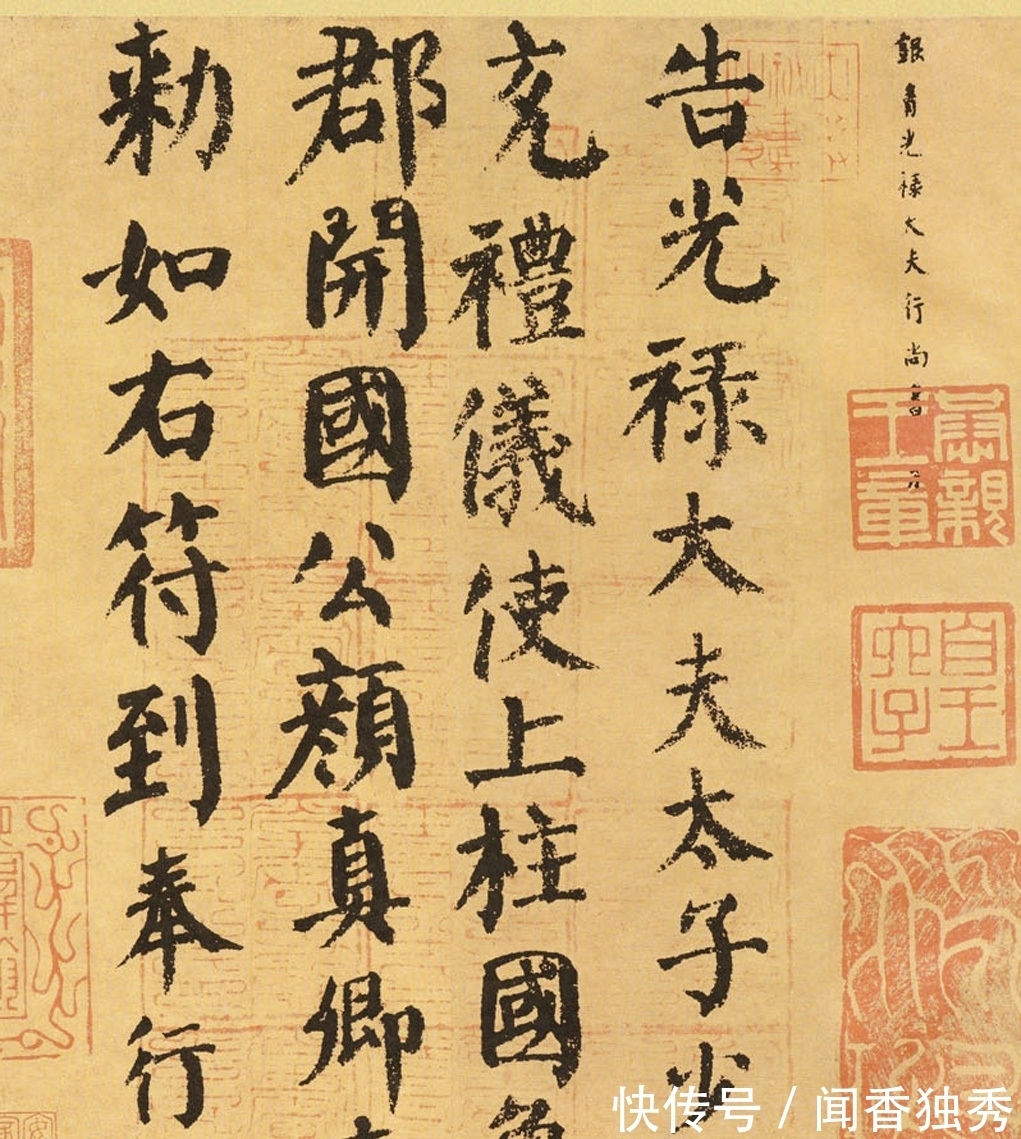 銀青光禄大夫行尚書
告光禄大夫太子少
充禮儀使上柱國
郡開國公顔真卿
勅如右符到奉行
肅親王章
快传号 / 闻香独秀